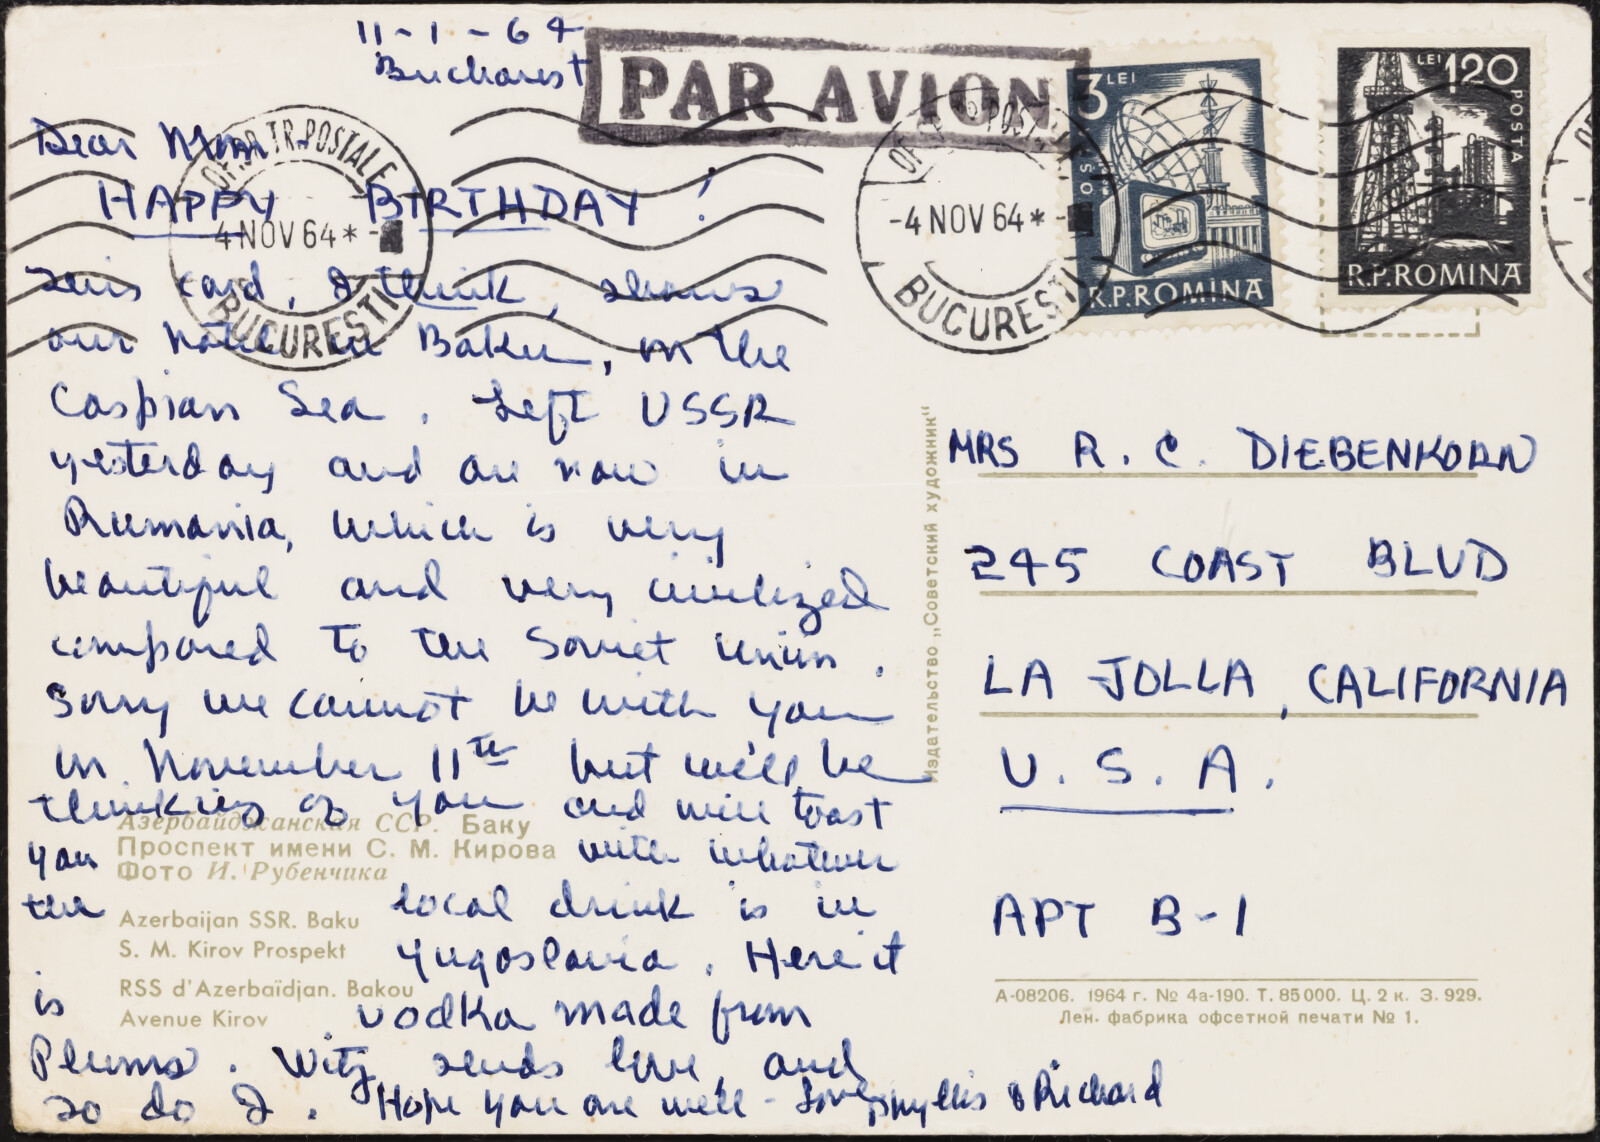 11-1-64
Bucharest
PAR AVION
Dear Mom -
HAPPY BIRTHDAY!
This card, I think, shows
our hotel in Baku, on the
Caspian Sea. Left USSR
yesterday and are now in
Rumania, which is very
beautiful and very civilized
compared to the Soviet Union.
Sorry we cannot be with you
on November 11th but we'll be
thinking of you and will toast
you with whatever
the local drink is in
Yugoslavia. Here it
is vodka made from
Plums. Witz sends love, and
so do I. Hope you are well - Love, Phyllis & Richard
Азербайджанская ССР. Баку
Проспект имени С. М. Кирова
Фото И. Рубенчика
Azerbaijan SSR. Baku
S. M. Kirov Prospekt
RSS d'Azerbaïdjan. Bakou
Avenue Kirov
TR. POSTALE
4 NOV 64*-
BUCUREȘTI
-4 NOV 64*-
BUCUREȘTI
3 LEI
R.P.ROMINA
LEI 1,20
POSTA
R.P.ROMINA
Издательство „Советский художник“
MRS R. C. DIEBENKORN
245 COAST BLVD
LA JOLLA, CALIFORNIA
U. S. A.
APT B-1
А-08206. 1964 г. № 4а-190. Т. 85000. Ц. 2 к. З. 929.
Лен. фабрика офсетной печати № 1.